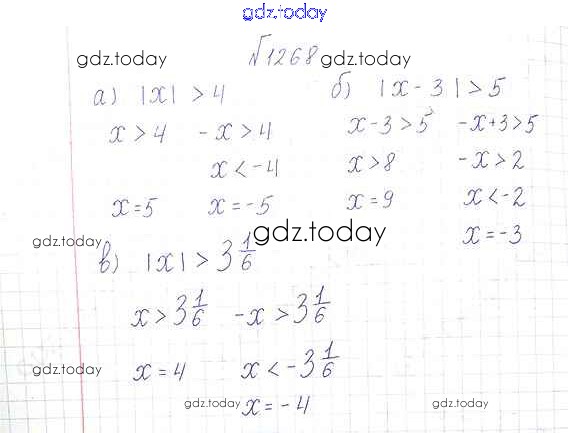 gdz.today
№1268
gdz.today gdz.today
а) |x| > 4
x > 4 -x > 4
x < -4
x = 5 x = -5
б) |x - 3| > 5
x - 3 > 5 -x + 3 > 5
x > 8 -x > 2
x = 9 x < -2
x = -3
gdz.today gdz.today
в) |x| > 3 1/6
x > 3 1/6 -x > 3 1/6
x = 4 x < -3 1/6
x = -4
gdz.today gdz.today gdz.today